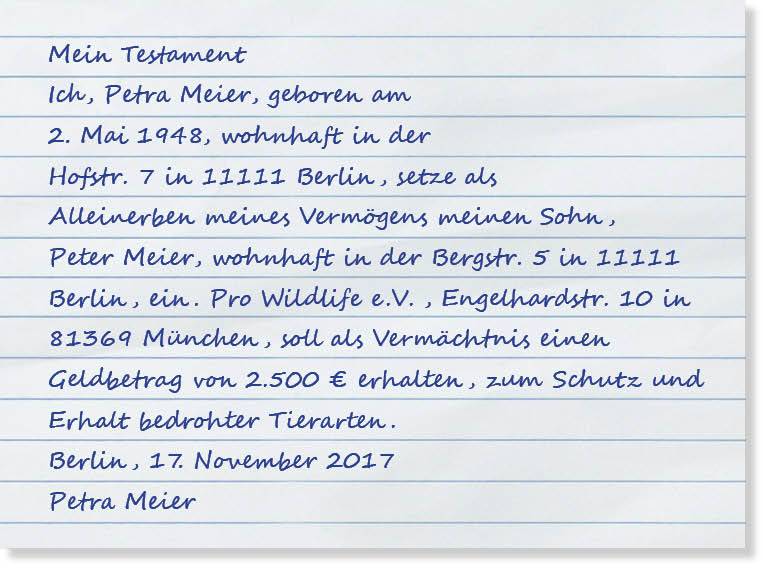 Mein Testament
Ich, Petra Meier, geboren am
2. Mai 1948, wohnhaft in der
Hofstr. 7 in 11111 Berlin, setze als
Alleinerben meines Vermögens meinen Sohn,
Peter Meier, wohnhaft in der Bergstr. 5 in 11111
Berlin, ein. Pro Wildlife e.V. , Engelhardstr. 10 in
81369 München, soll als Vermächtnis einen
Geldbetrag von 2.500 € erhalten, zum Schutz und
Erhalt bedrohter Tierarten.
Berlin, 17. November 2017
Petra Meier